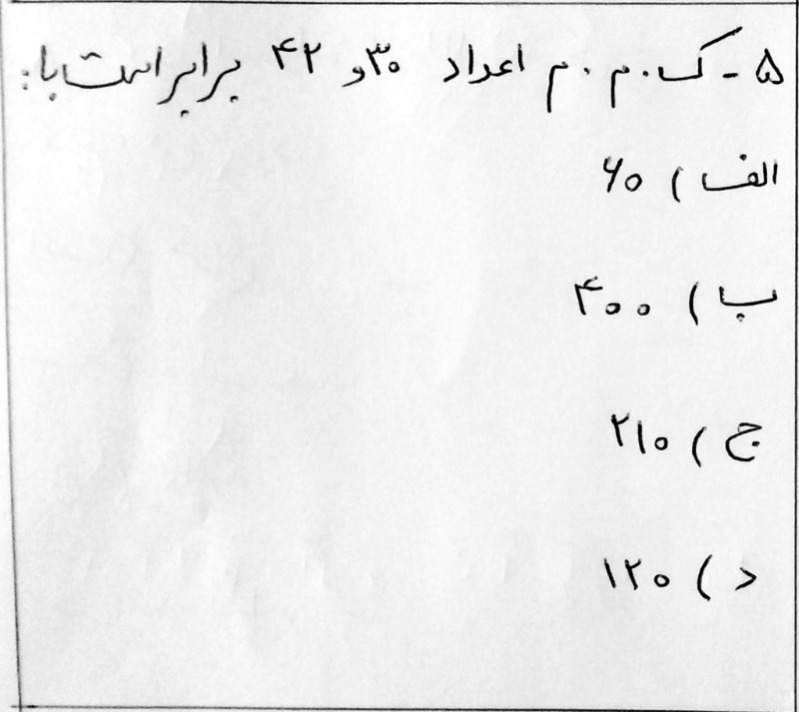 ۵ - ک.م.م اعداد ۳۰ و ۴۲ برابر است با:
الف) ۶۰
ب) ۴۰۰
ج) ۲۱۰
د) ۱۲۰